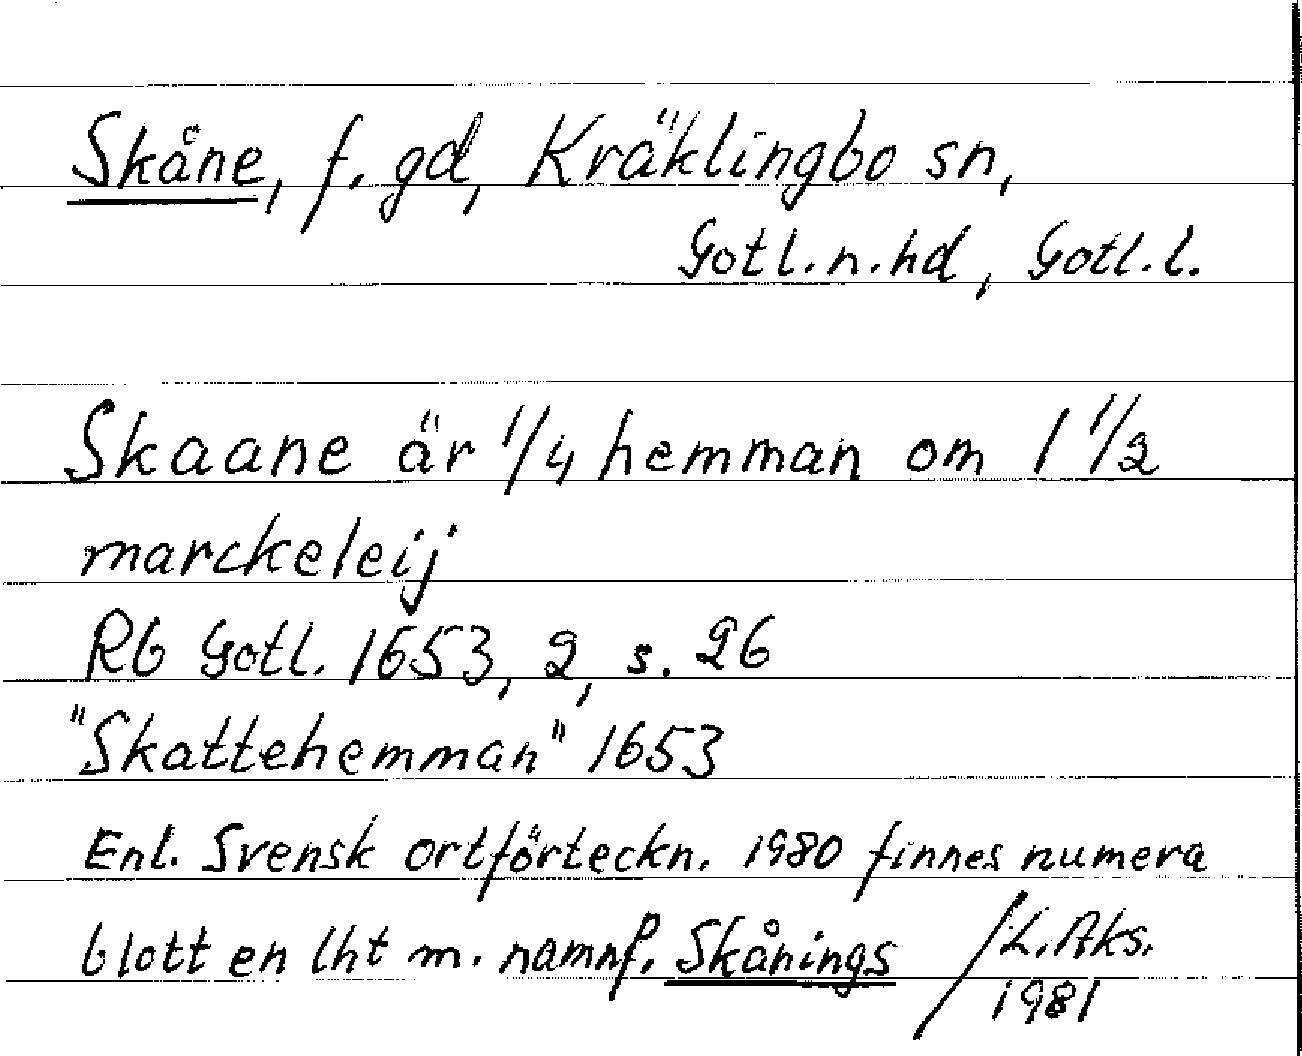 Skåne, f. gd, Kräklingbo sn,
Gotl. n. hd, Gotl. l.
Skaane är 1/4 hemman om 1 1/2
marckeleij
Rb Gotl. 1653, 2, s. 26
"Skattehemman" 1653
Enl. Svensk ortförteckn. 1980 finnes numera
blott en lht m. namnf. Skånings /L. Aks.
1981